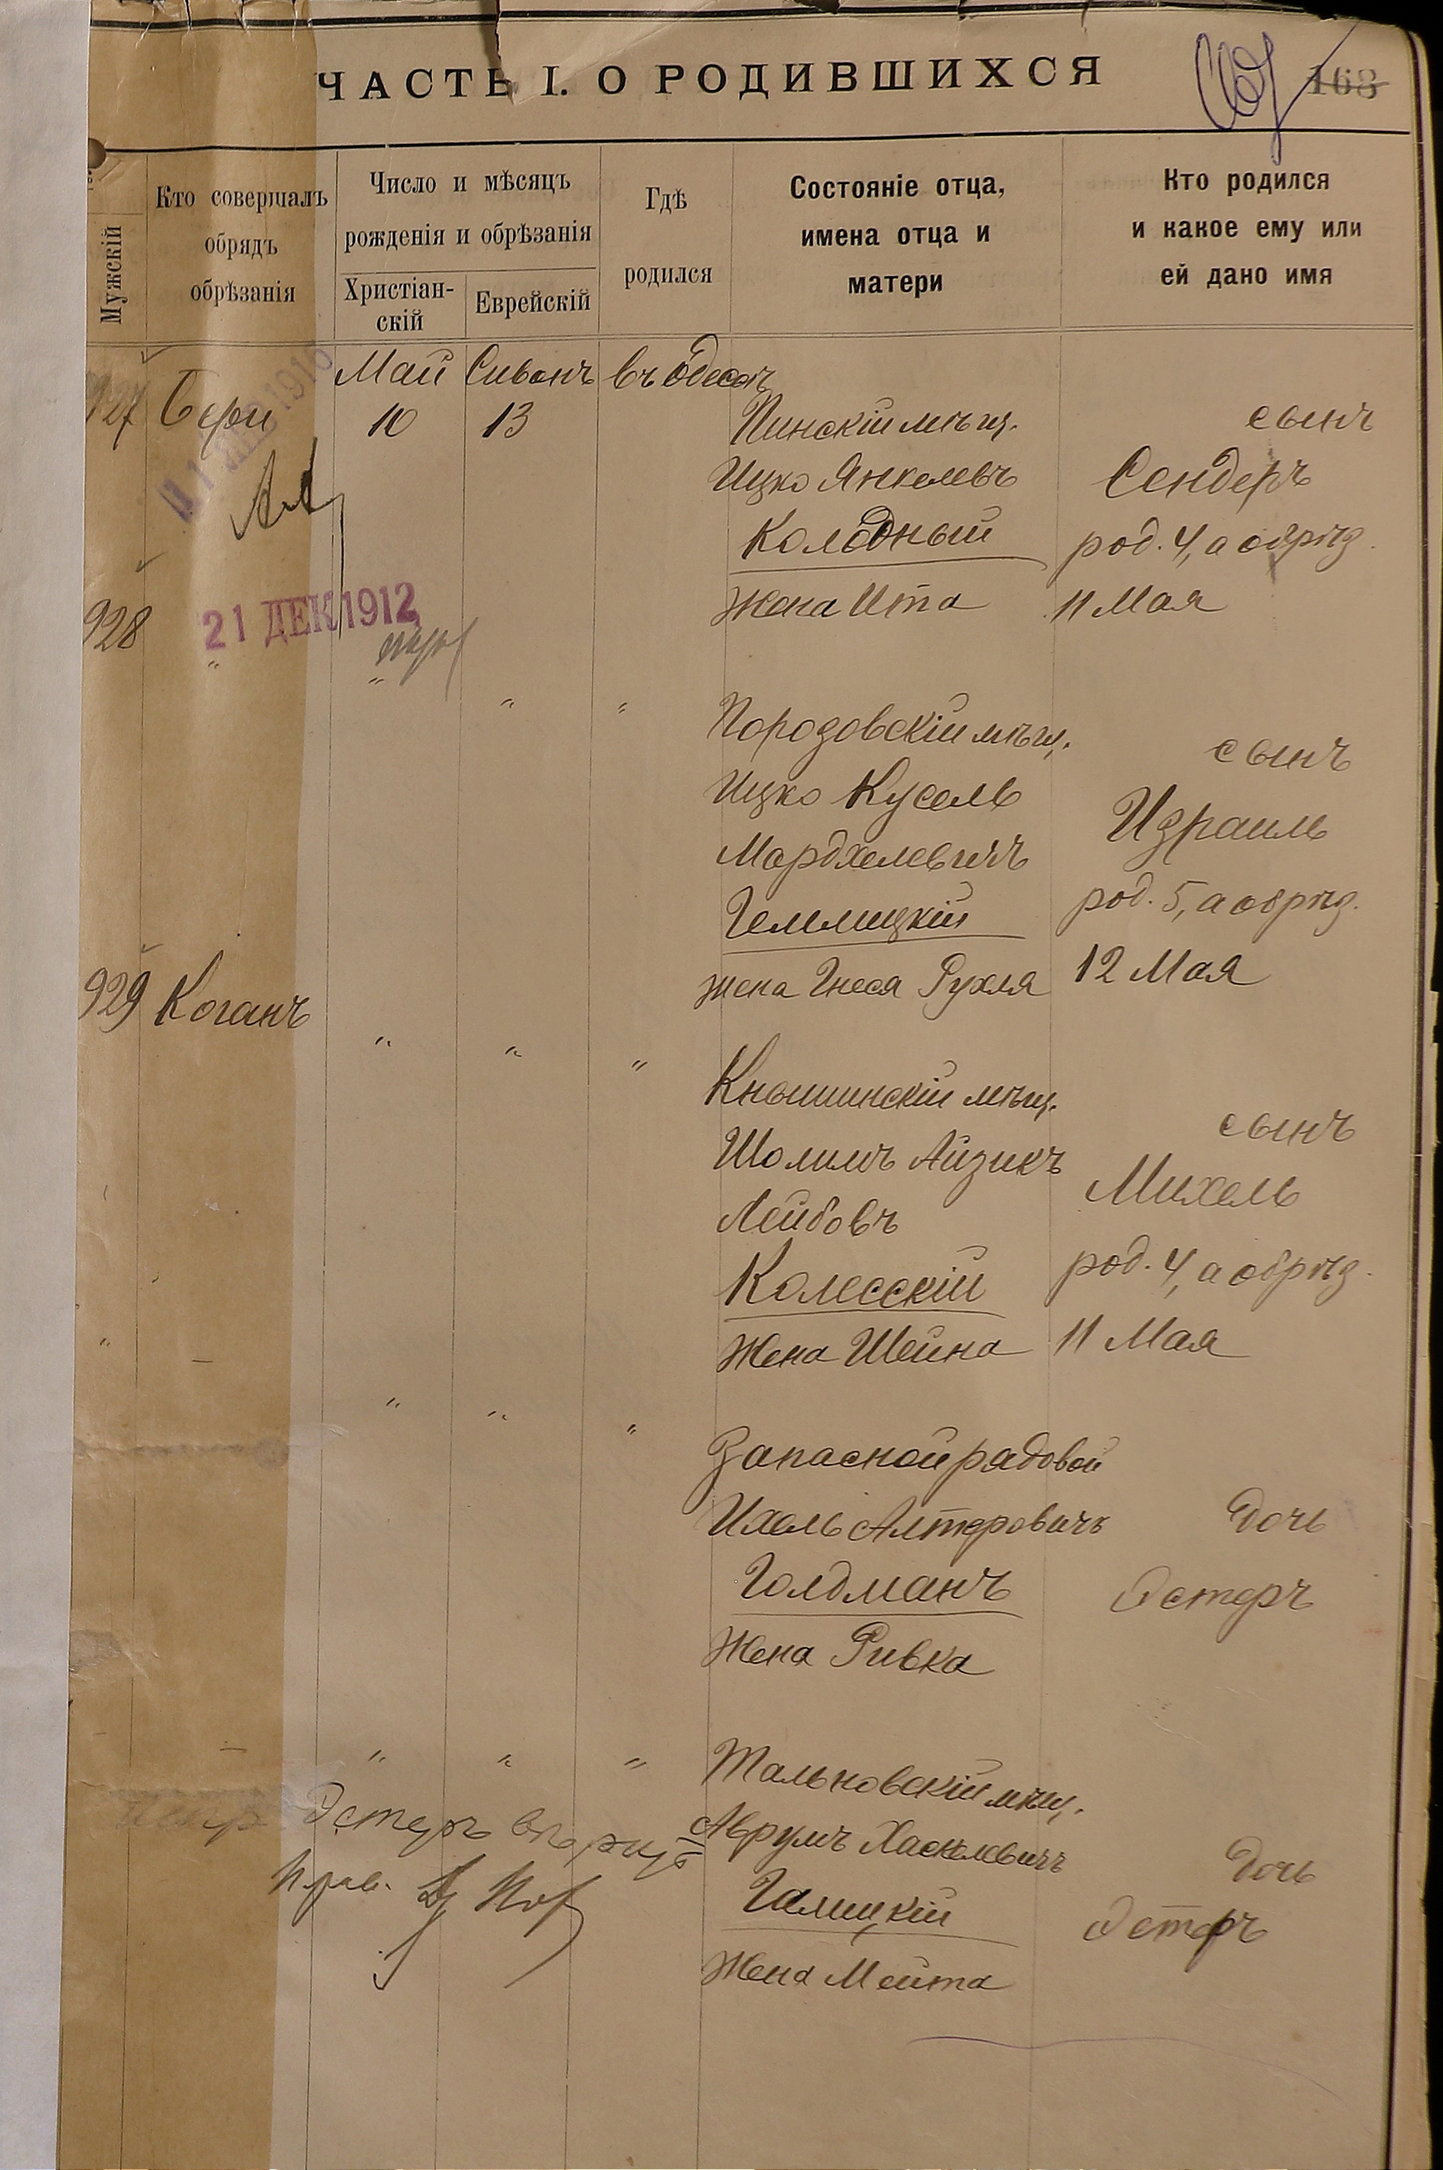 ЧАСТЬ I. О РОДИВШИХСЯ
168
Мужскій
Кто совершалъ
обрядъ
обрѣзанія
Число и мѣсяцъ
рожденія и обрѣзанія
Христіан-
скій
Еврейскій
Гдѣ
родился
Состояніе отца,
имена отца и
матери
Кто родился
и какое ему или
ей дано имя
Май Сиванъ въ Одессѣ
927 Бери 10 13 Пинскій мѣщ. сынъ
Ицко Янкелевъ Сендеръ
Колодный род. 4, а обрѣз.
жена Ита 11 Мая
928 21 ДЕК 1912
" " " "
Порозовскій мѣщ. сынъ
Ицко Кусель Израиль
Мордхелевичъ род. 5, а обрѣз.
жена Гнеся Рухля 12 Мая
929 Коганъ " " "
Кнышинскій мѣщ. сынъ
Шоломъ Айзикъ Михель
Лейбовъ
Колесскій род. 4, а обрѣз.
жена Шейна 11 Мая
" — " " "
Запасной рядовой
Ихель Алтеровичъ дочь
Голдманъ Эстеръ
жена Ривка
— " " " Тальновскій мѣщ.
Аврумъ Хаскелевичъ дочь
Галицкій Эстеръ
жена Мейта
Эстеръ